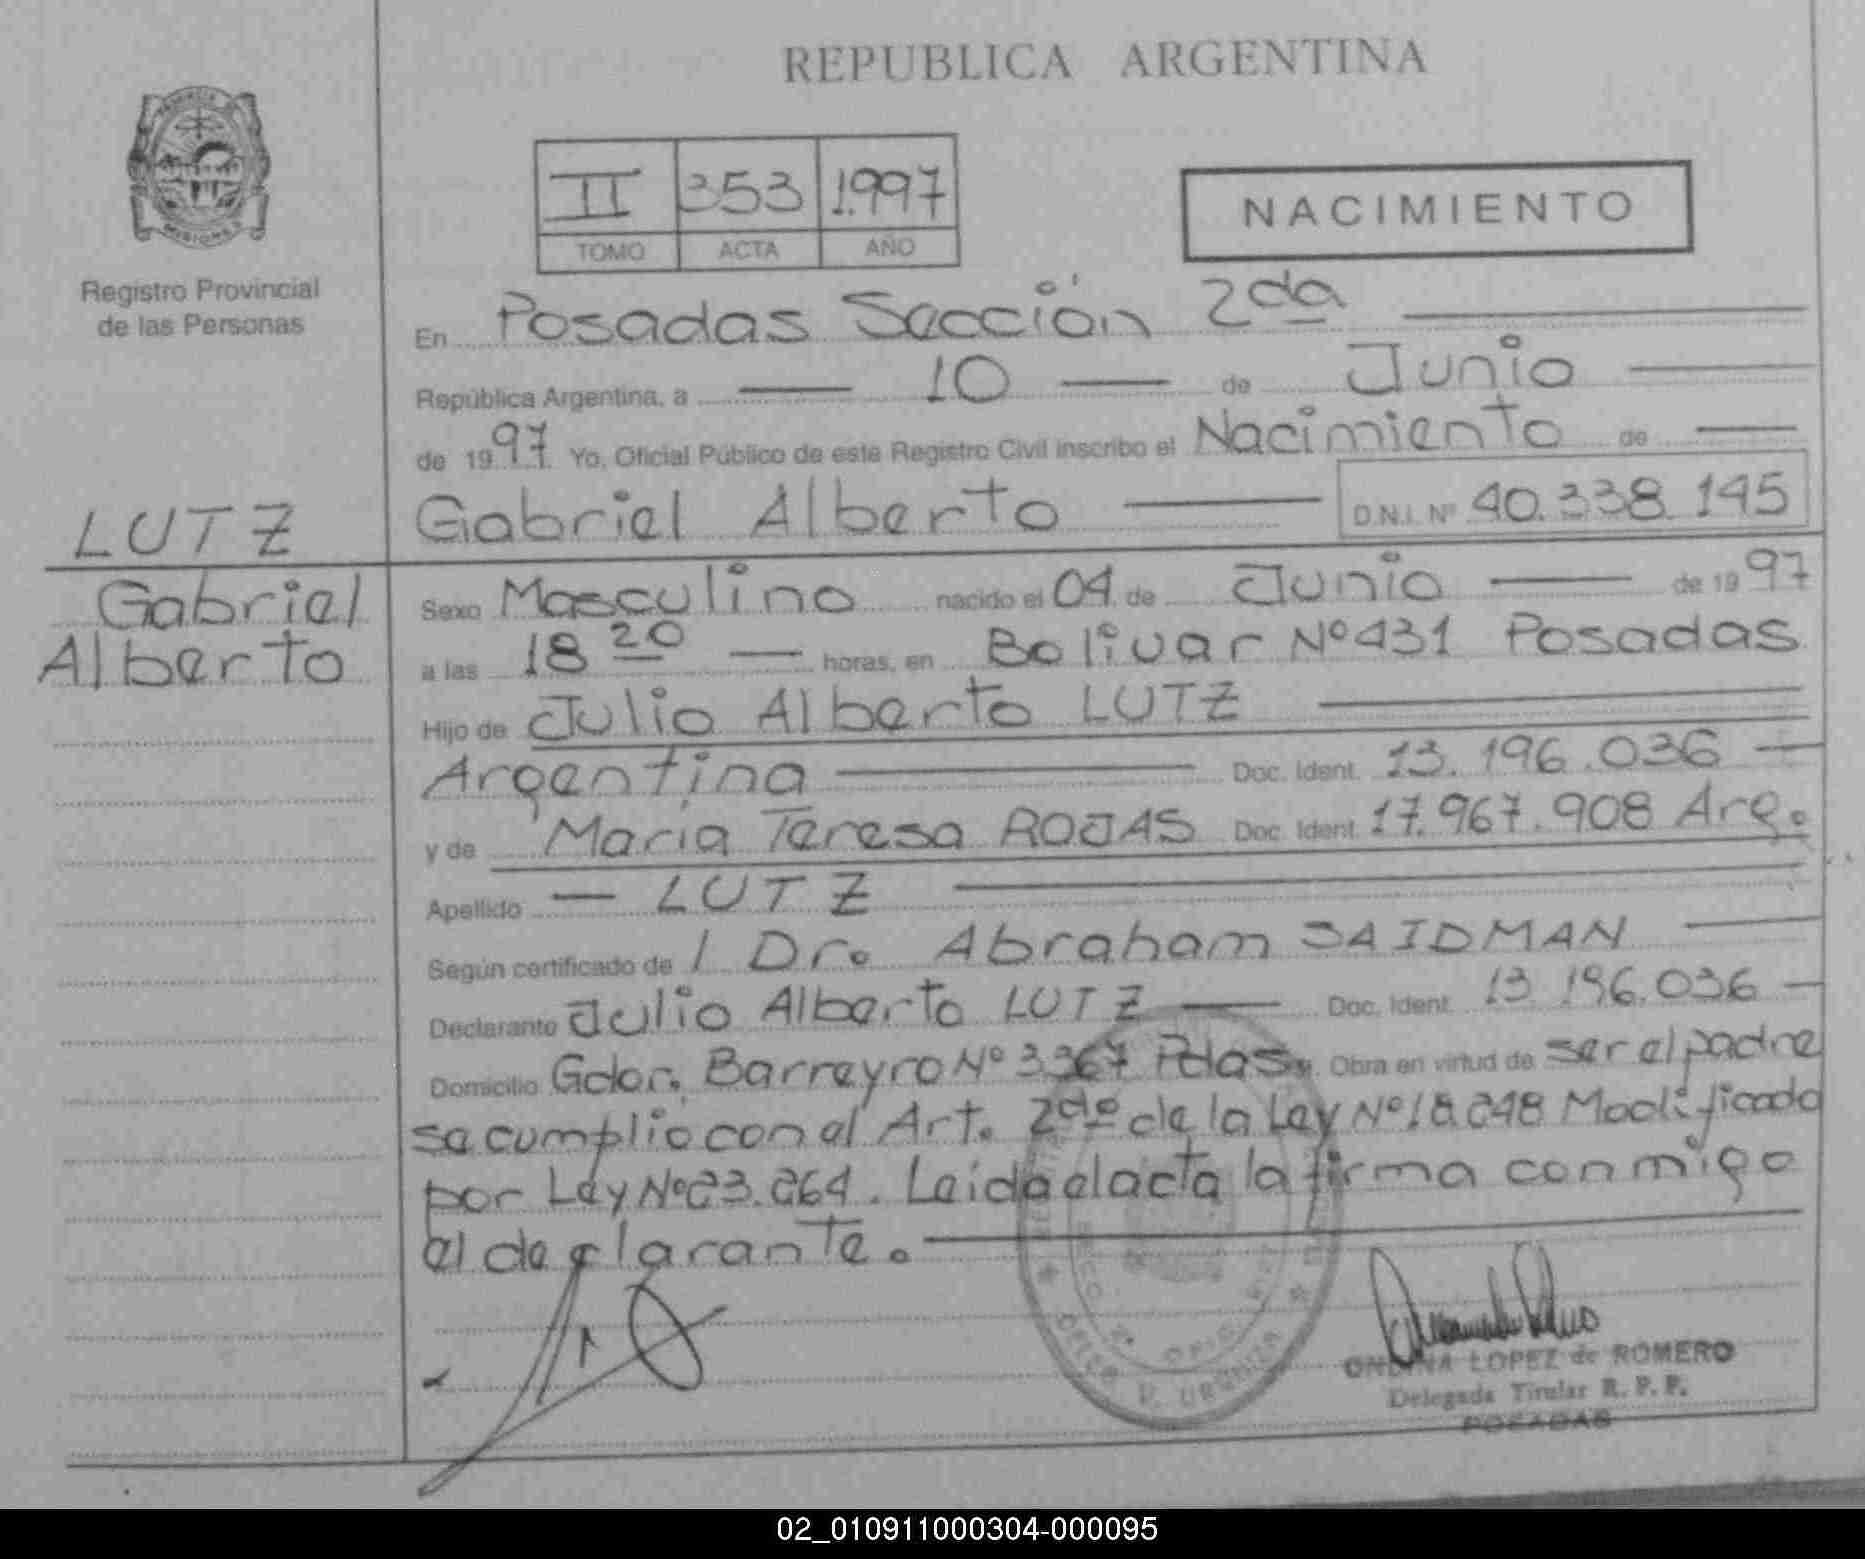 REPUBLICA ARGENTINA
MISIONES
Registro Provincial
de las Personas
II 353 1.997
TOMO ACTA AÑO
NACIMIENTO
En Posadas Sección 2da
República Argentina, a 10 de Junio
de 1997 Yo, Oficial Público de este Registro Civil inscribo el Nacimiento de
Gabriel Alberto D.N.I. Nº 40.338.145
LUTZ
Gabriel
Alberto
Sexo Masculino nacido el 04 de Junio de 1997
a las 18 20 horas, en Bolivar Nº 431 Posadas
Hijo de Julio Alberto LUTZ
Argentina Doc. Ident. 13.196.036
y de Maria Teresa ROJAS Doc. Ident. 17.967.908 Arg.
Apellido LUTZ
Según certificado de / Dr. Abraham SAIDMAN
Declarante Julio Alberto LUTZ Doc. Ident. 13.196.036
Domicilio Gdor. Barreyro Nº 3367 Pdas. Obra en virtud de ser el padre
se cumplio con el Art. 2do de la Ley Nº 18.248 Modificada
por Ley Nº 23.264. Leida el acta la firma conmigo
el declarante.
ONDINA LOPEZ de ROMERO
Delegada Titular R. P. P.
POSADAS
02_010911000304-000095